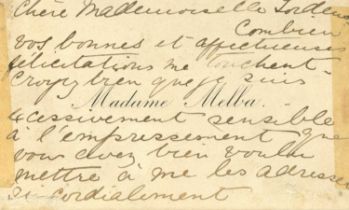 Chère Mademoiselle Tordeus
Combien
vos bonnes et affectueuses
félicitations me touchent
Croyez bien que je suis
Madame Melba.
excessivement sensible
à l'empressement que
vous avez bien voulu
mettre à me les adresser
si cordialement